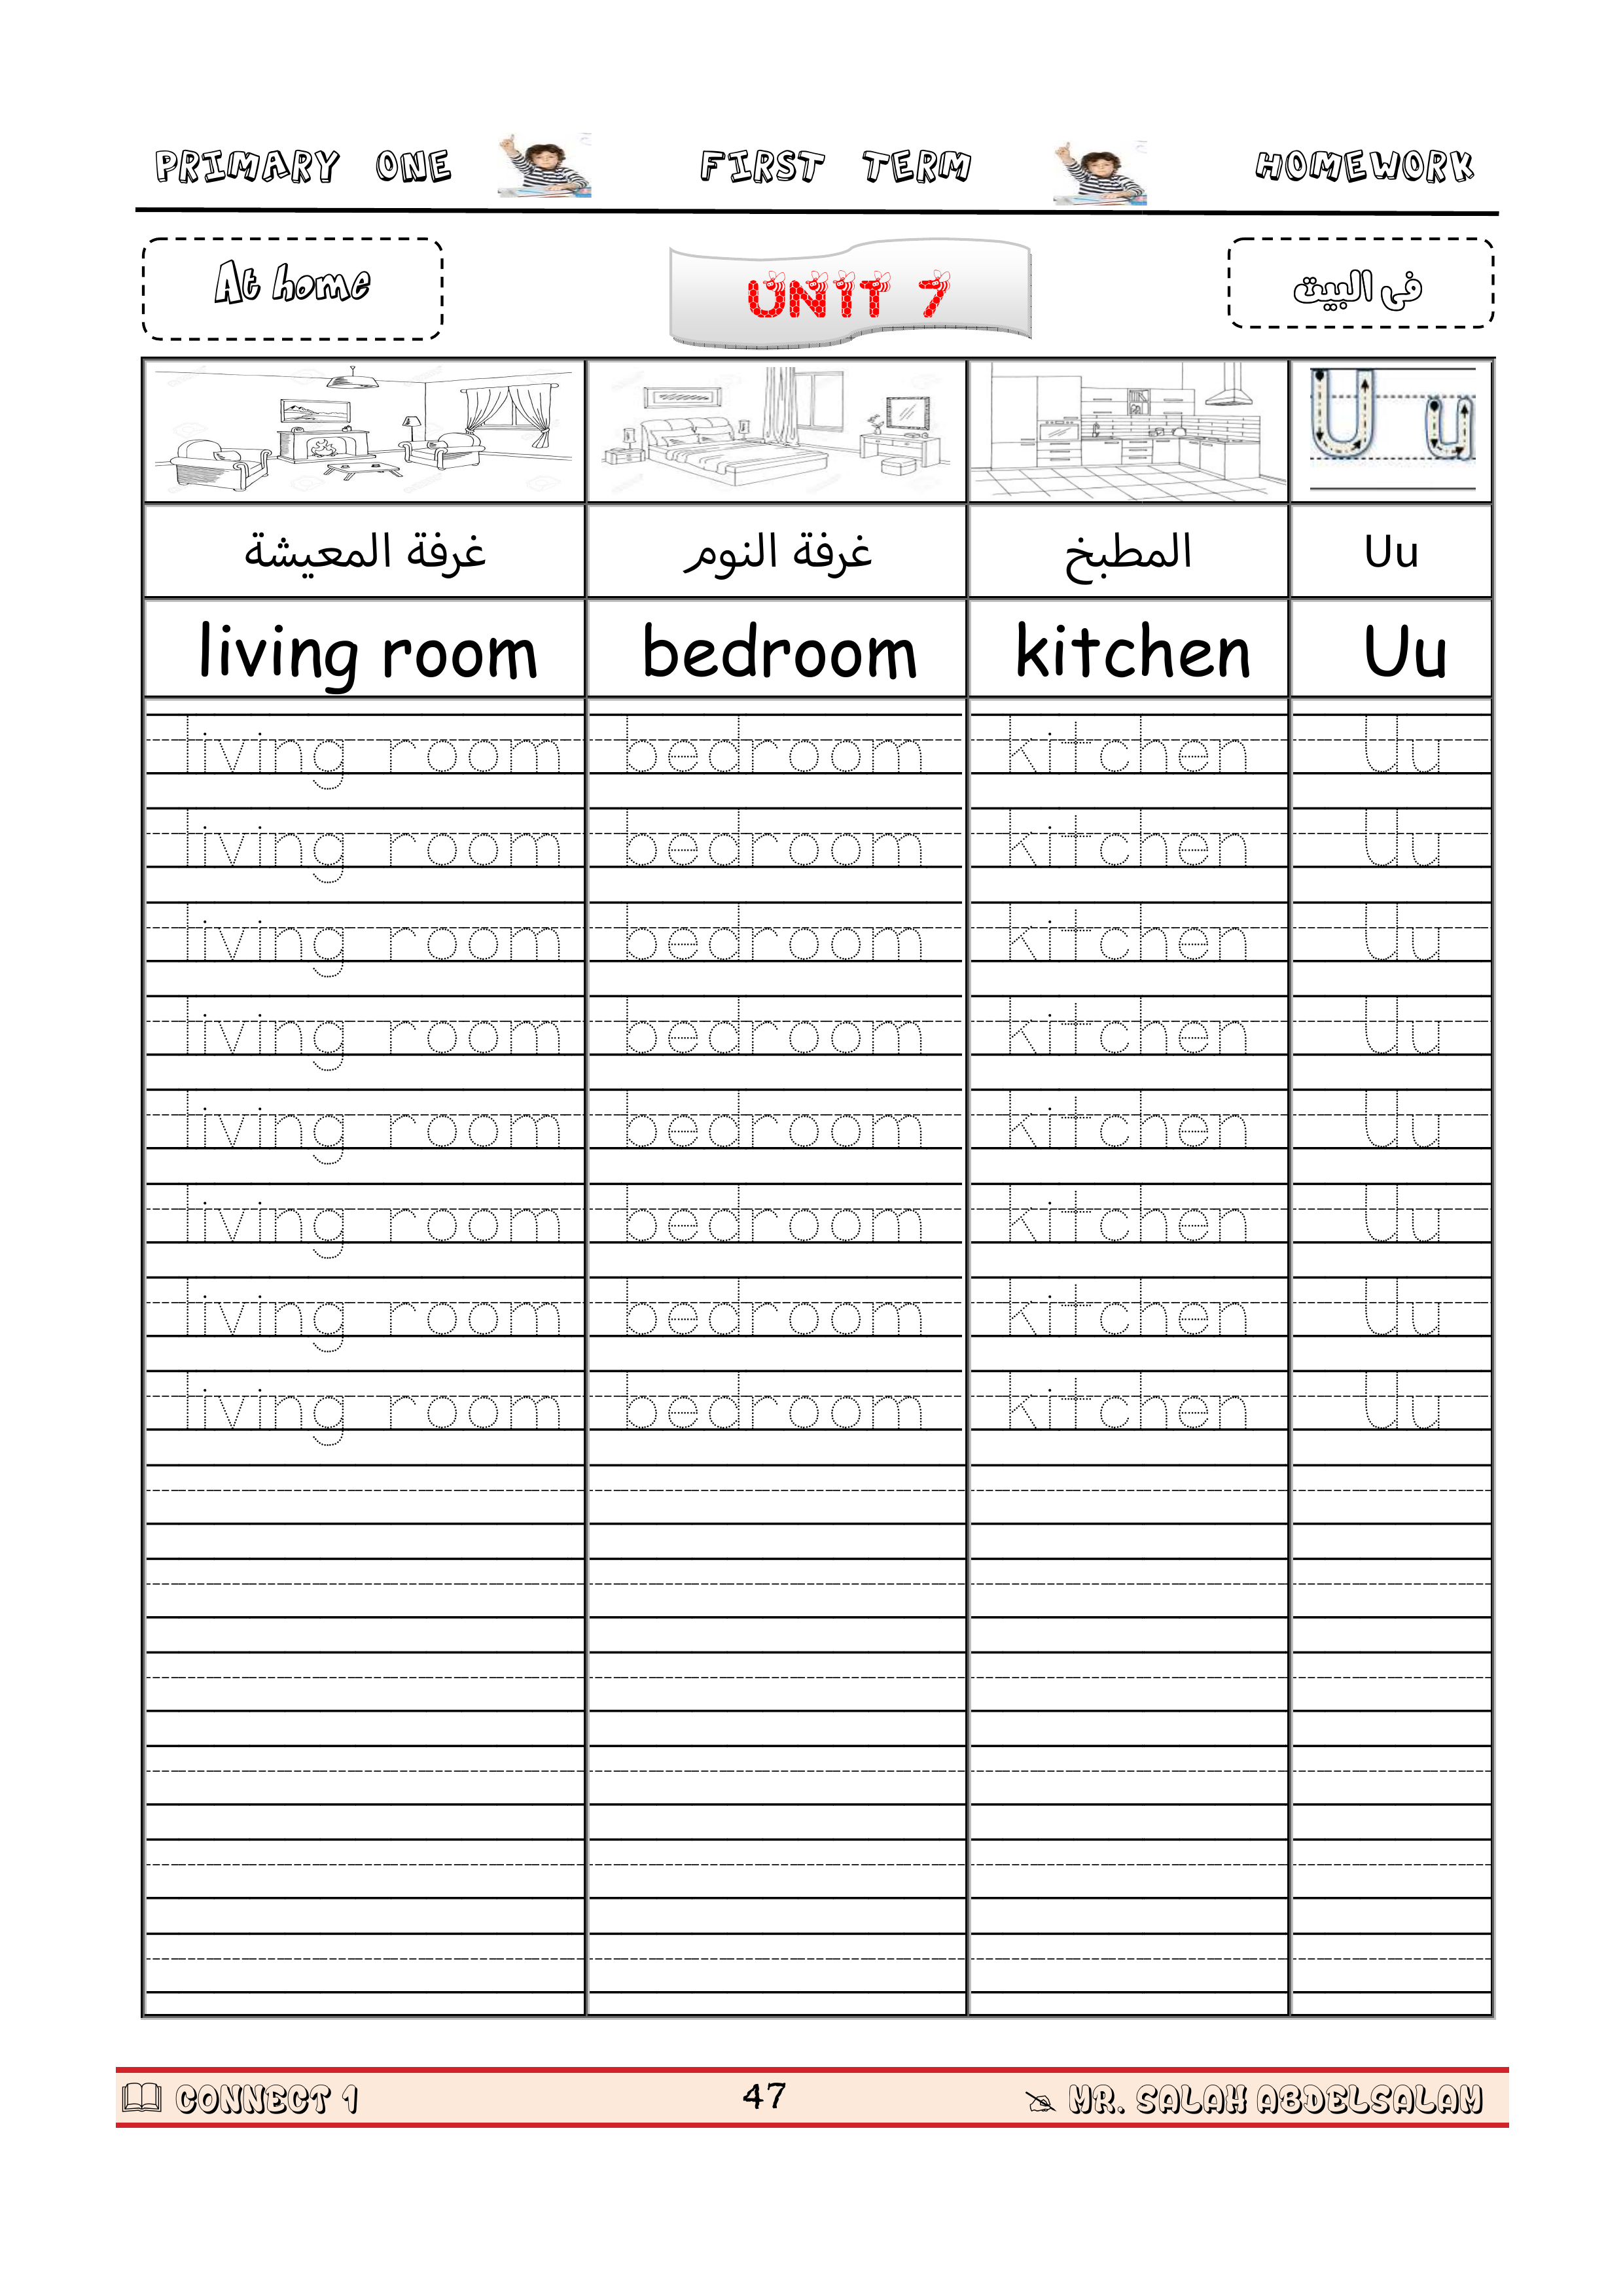 PRIMARY ONE FIRST TERM HOMEWORK
At home UNIT 7 فى البيت
U u
غرفة المعيشة غرفة النوم المطبخ Uu
living room bedroom kitchen Uu
living room bedroom kitchen Uu
living room bedroom kitchen Uu
living room bedroom kitchen Uu
living room bedroom kitchen Uu
living room bedroom kitchen Uu
living room bedroom kitchen Uu
living room bedroom kitchen Uu
living room bedroom kitchen Uu
CONNECT 1 47 MR. SALAH ABDELSALAM